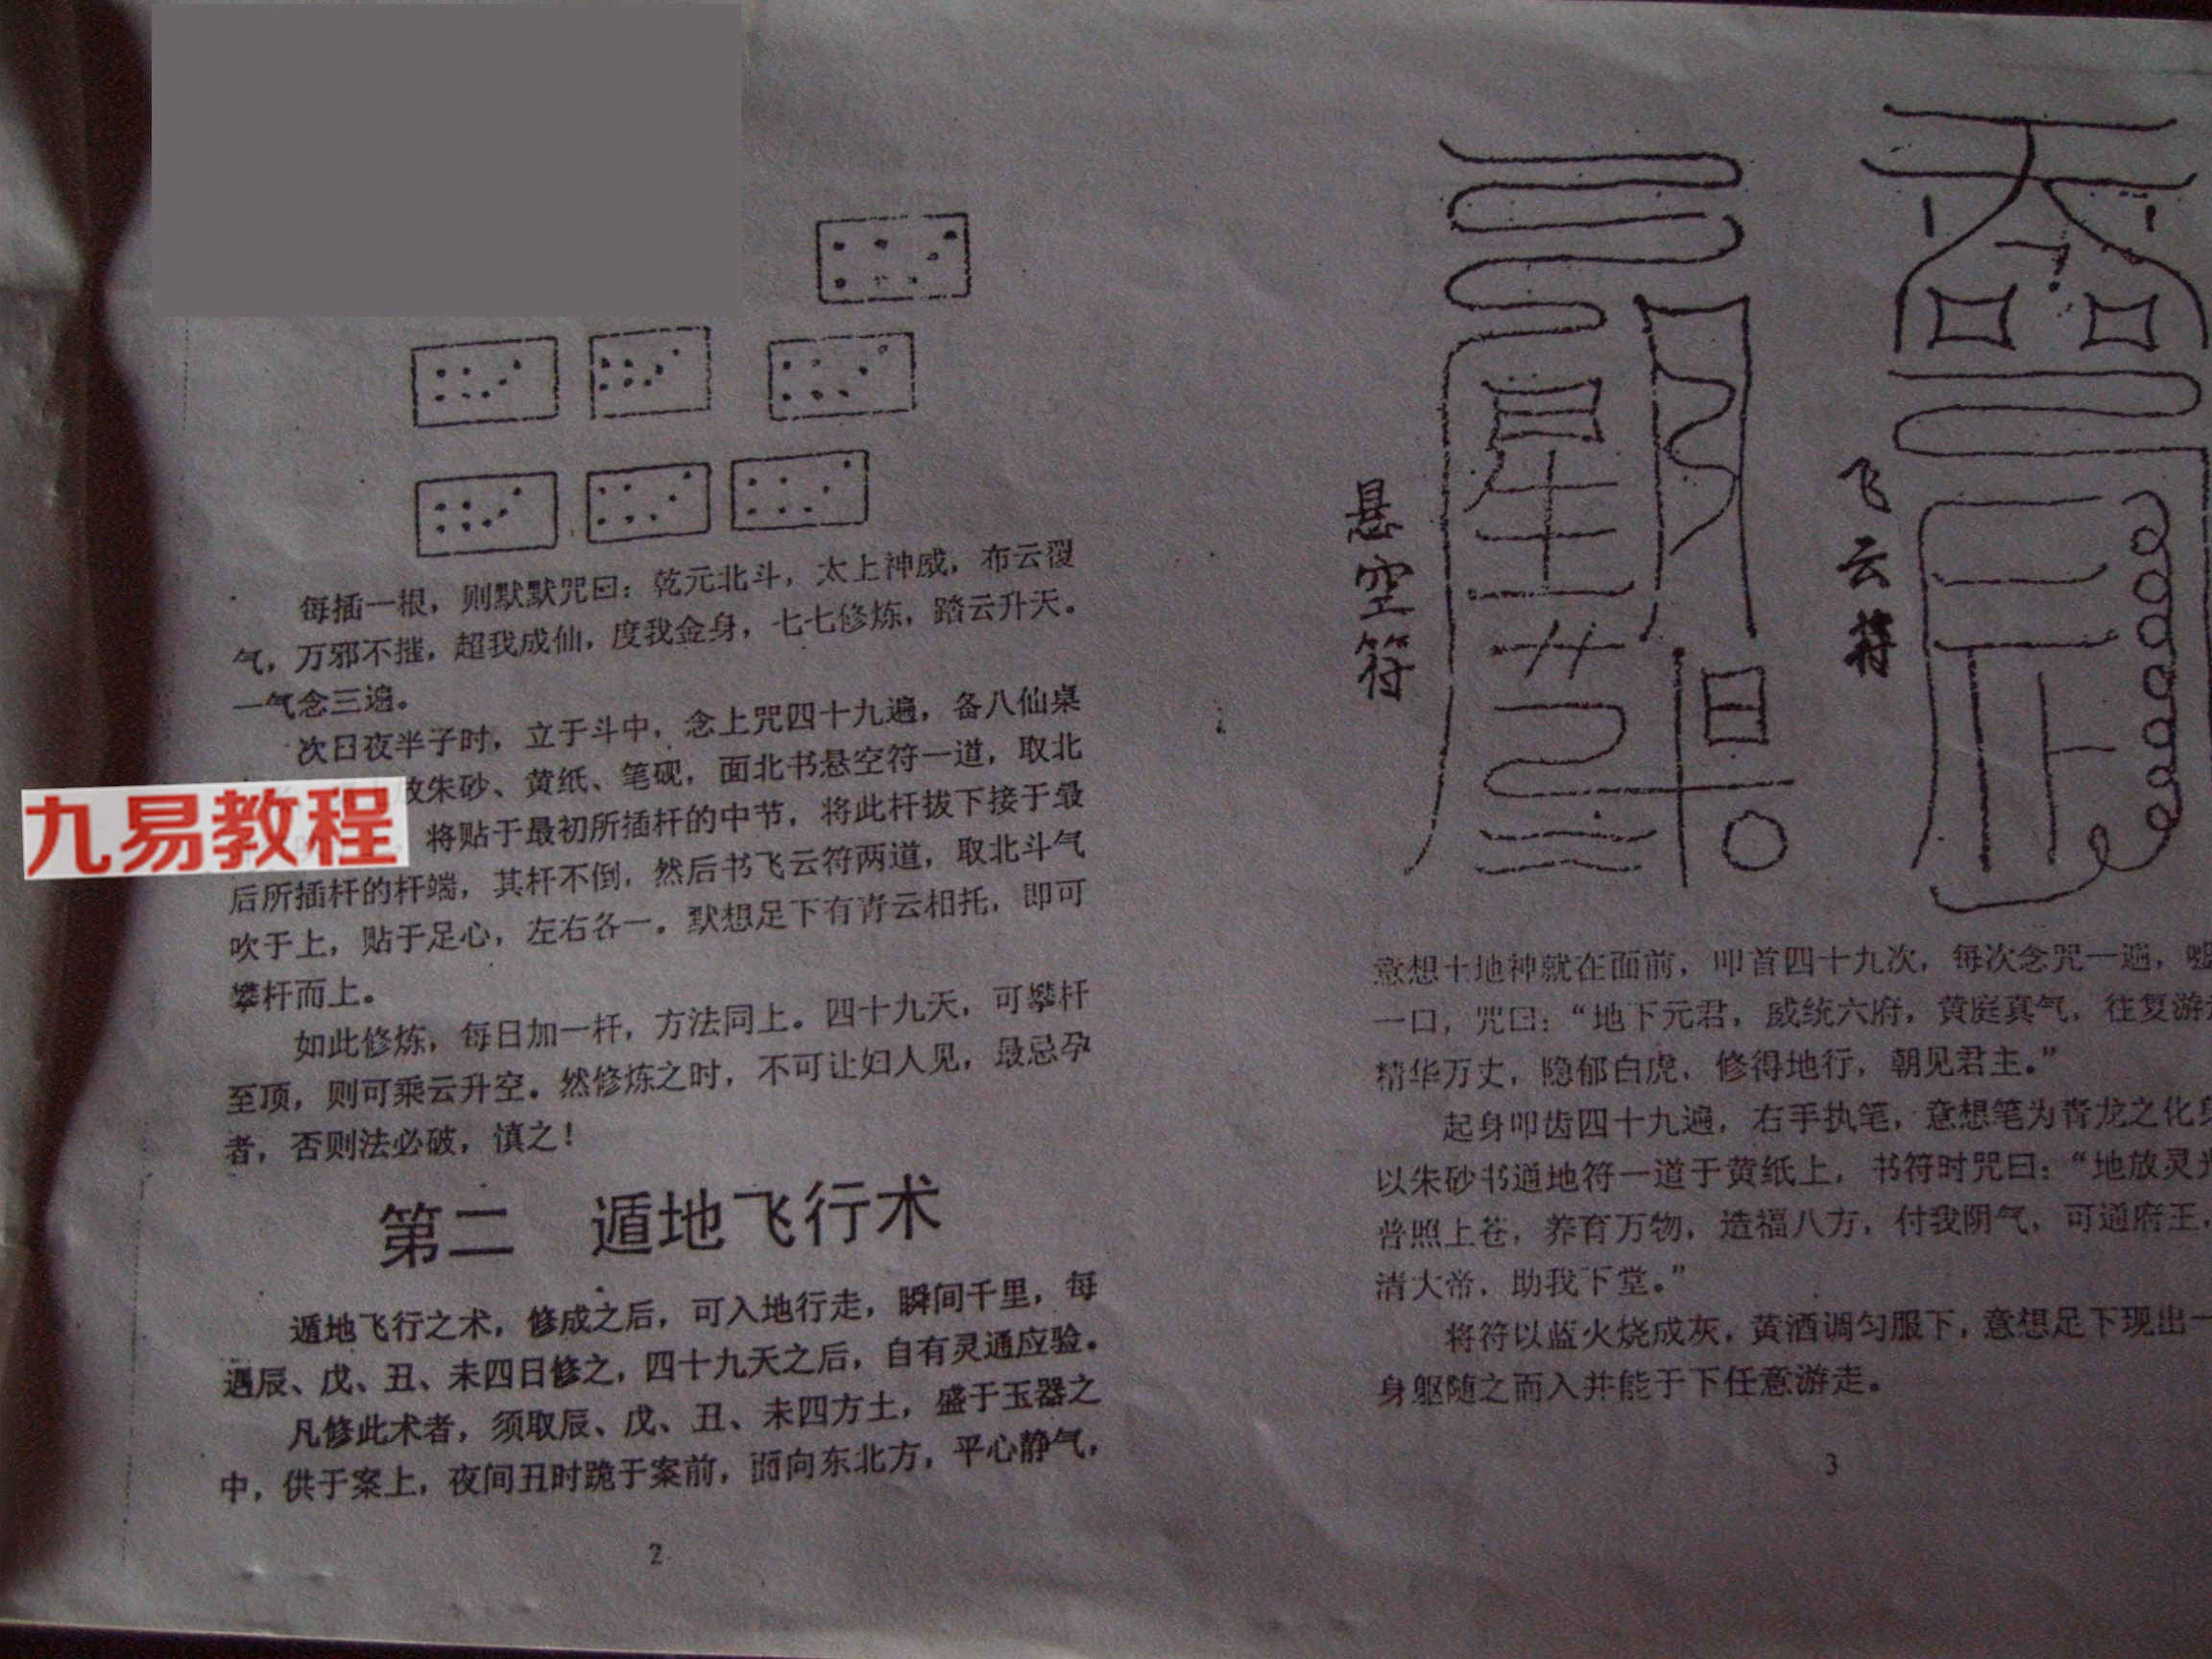 每插一根，则默默咒曰：乾元北斗，太上神威，布云覆
气，万邪不摧，超我成仙，度我金身，七七修炼，踏云升天。
一气念三遍。
次日夜半子时，立于斗中，念上咒四十九遍，备八仙桌
放朱砂、黄纸、笔砚，面北书悬空符一道，取北
九易教程
将贴于最初所插杆的中节，将此杆拔下接于最
后所插杆的杆端，其杆不倒，然后书飞云符两道，取北斗气
吹于上，贴于足心，左右各一。默想足下有青云相托，即可
攀杆而上。
如此修炼，每日加一杆，方法同上。四十九天，可攀杆
至顶，则可乘云升空。然修炼之时，不可让妇人见，最忌孕
者，否则法必破，慎之！
第二 遁地飞行术
遁地飞行之术，修成之后，可入地行走，瞬间千里，每
遇辰、戊、丑、未四日修之，四十九天之后，自有灵通应验。
凡修此术者，须取辰、戊、丑、未四方土，盛于玉器之
中，供于案上，夜间丑时跪于案前，面向东北方，平心静气，
2
悬空符
飞云符
意想土地神就在面前，叩首四十九次，每次念咒一遍，
一口，咒曰：“地下元君，威统六府，黄庭真气，往复游
精华万丈，隐郁白虎，修得地行，朝见君主。”
起身叩齿四十九遍，右手执笔，意想笔为青龙之化
以朱砂书通地符一道于黄纸上，书符时咒曰：“地放灵
普照上苍，养育万物，造福八方，付我阴气，可通府王，
清大帝，助我下堂。”
将符以蓝火烧成灰，黄酒调匀服下，意想足下现出一
身躯随之而入并能于下任意游走。
3